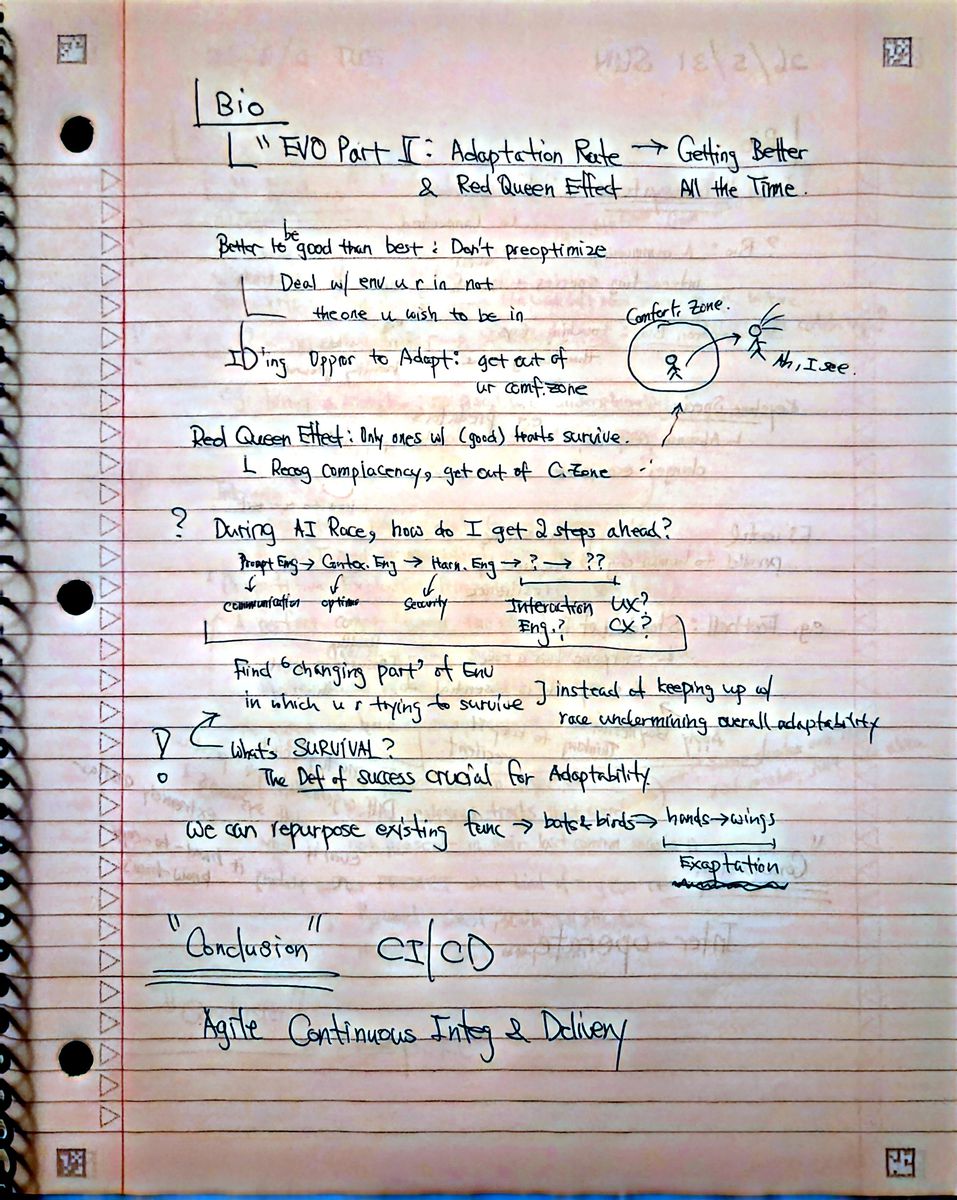 Bio
" EVO Part II : Adaptation Rate → Getting Better
& Red Queen Effect All the Time.
Better to be good than best : Don't preoptimize
Deal w/ env u r in not
the one u wish to be in
Comfort. Zone.
Ah, I see.
ID'ing Oppror to Adapt : get out of
ur comf. zone
Red Queen Effect : Only ones w/ (good) traits survive.
Recog complacency, get out of C. Zone
? During AI Race, how do I get 2 steps ahead?
Prompt Eng → Contex. Eng → Harn. Eng → ? → ??
communication optimo security Interaction UX?
Eng.? CX?
Find 'changing part' of Env
in which u r trying to survive ] instead of keeping up w/
race undermining overall adaptability
What's SURVIVAL?
The Def of success crucial for Adaptability.
We can repurpose existing func → bats & birds → hands → wings
Exaptation
"Conclusion" CI/CD
Agile Continuous Integ & Delivery